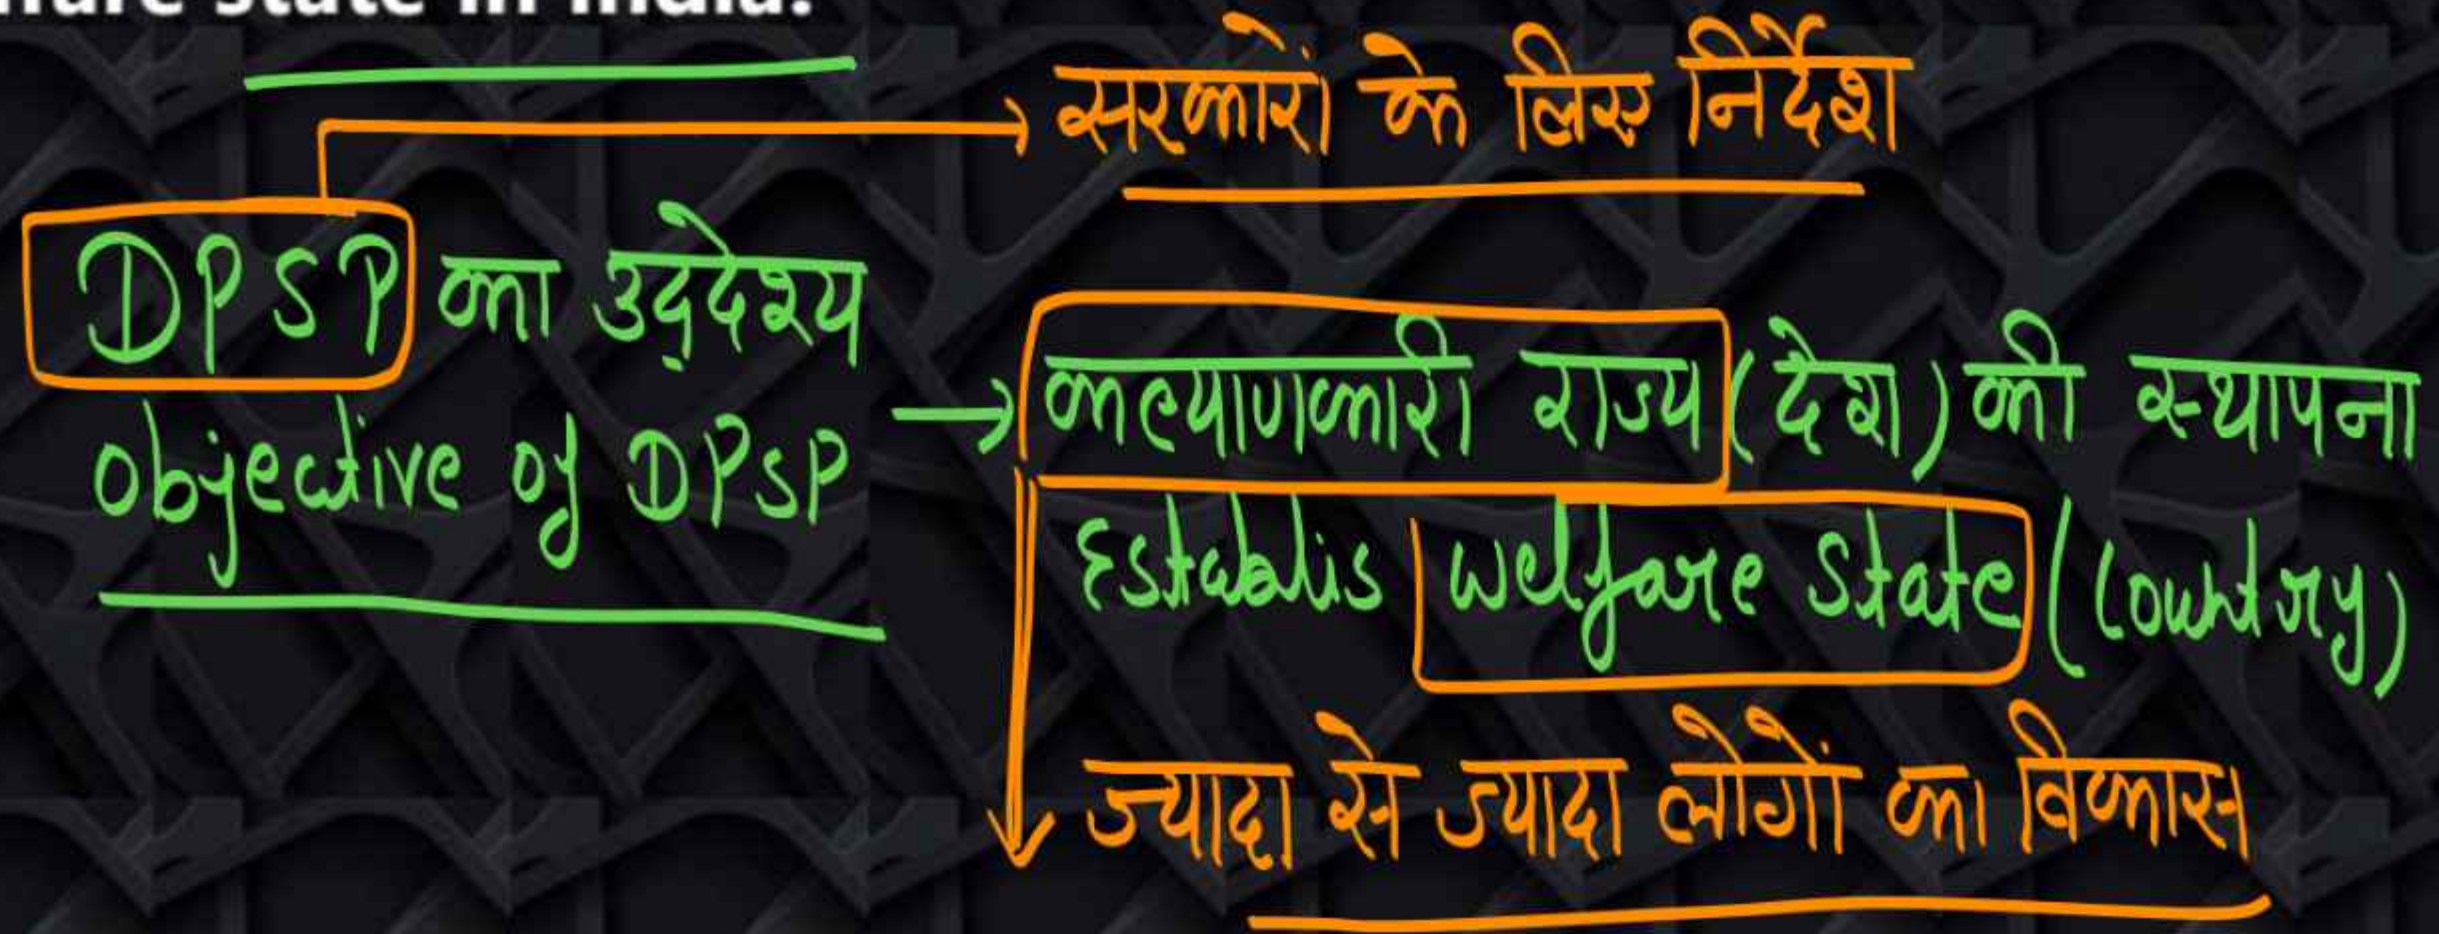 state in India.
सरकारों के लिए निर्देश
DPSP का उद्देश्य
objective of DPSP
→ कल्याणकारी राज्य (देश) की स्थापना
Establis welfare state (Country)
ज्यादा से ज्यादा लोगों का विकास